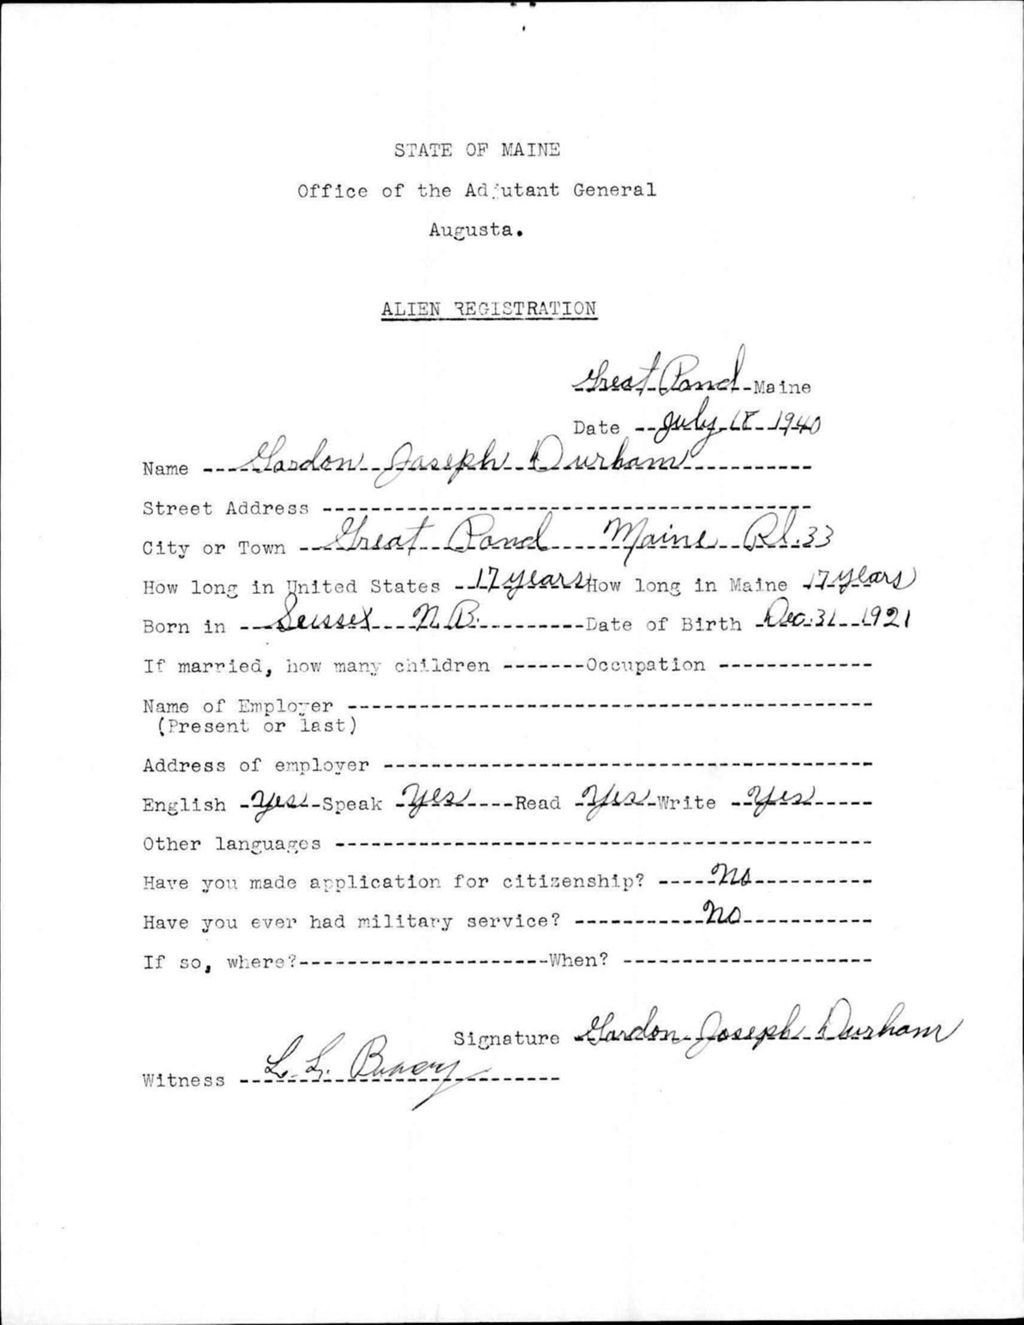 STATE OF MAINE
Office of the Adjutant General
Augusta.
ALIEN REGISTRATION
Great Pond Maine
Date July 18 1940
Name Gordon Joseph Durham
Street Address
City or Town Great Pond Maine Pl. 33
How long in United States 17 years How long in Maine 17 years
Born in Sussex N.B. Date of Birth Dec. 31 1921
If married, how many children Occupation
Name of Employer
(Present or last)
Address of employer
English Yes Speak Yes Read Yes Write Yes
Other languages
Have you made application for citizenship? No
Have you ever had military service? No
If so, where? When?
Signature Gordon Joseph Durham
Witness L. L.